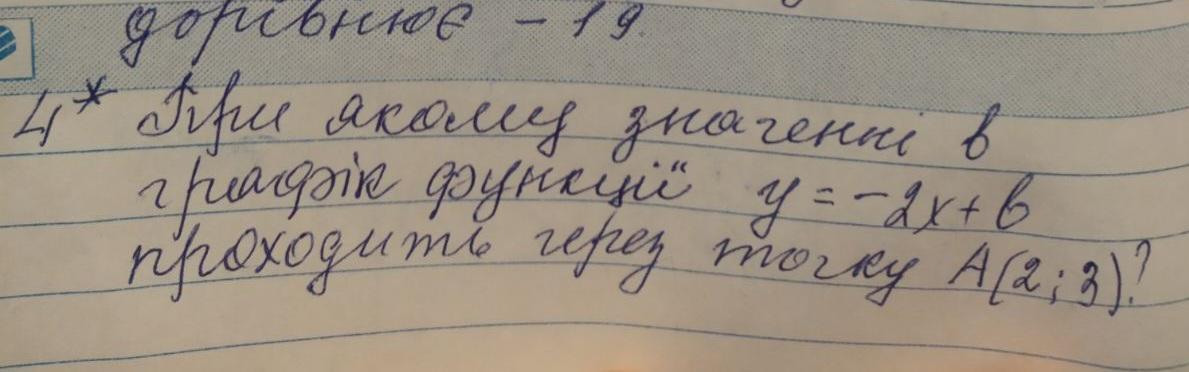 дорівнює - 19.
4* При якому значенні в
графік функції y = -2x + в
проходить через точку A(2; 3)?